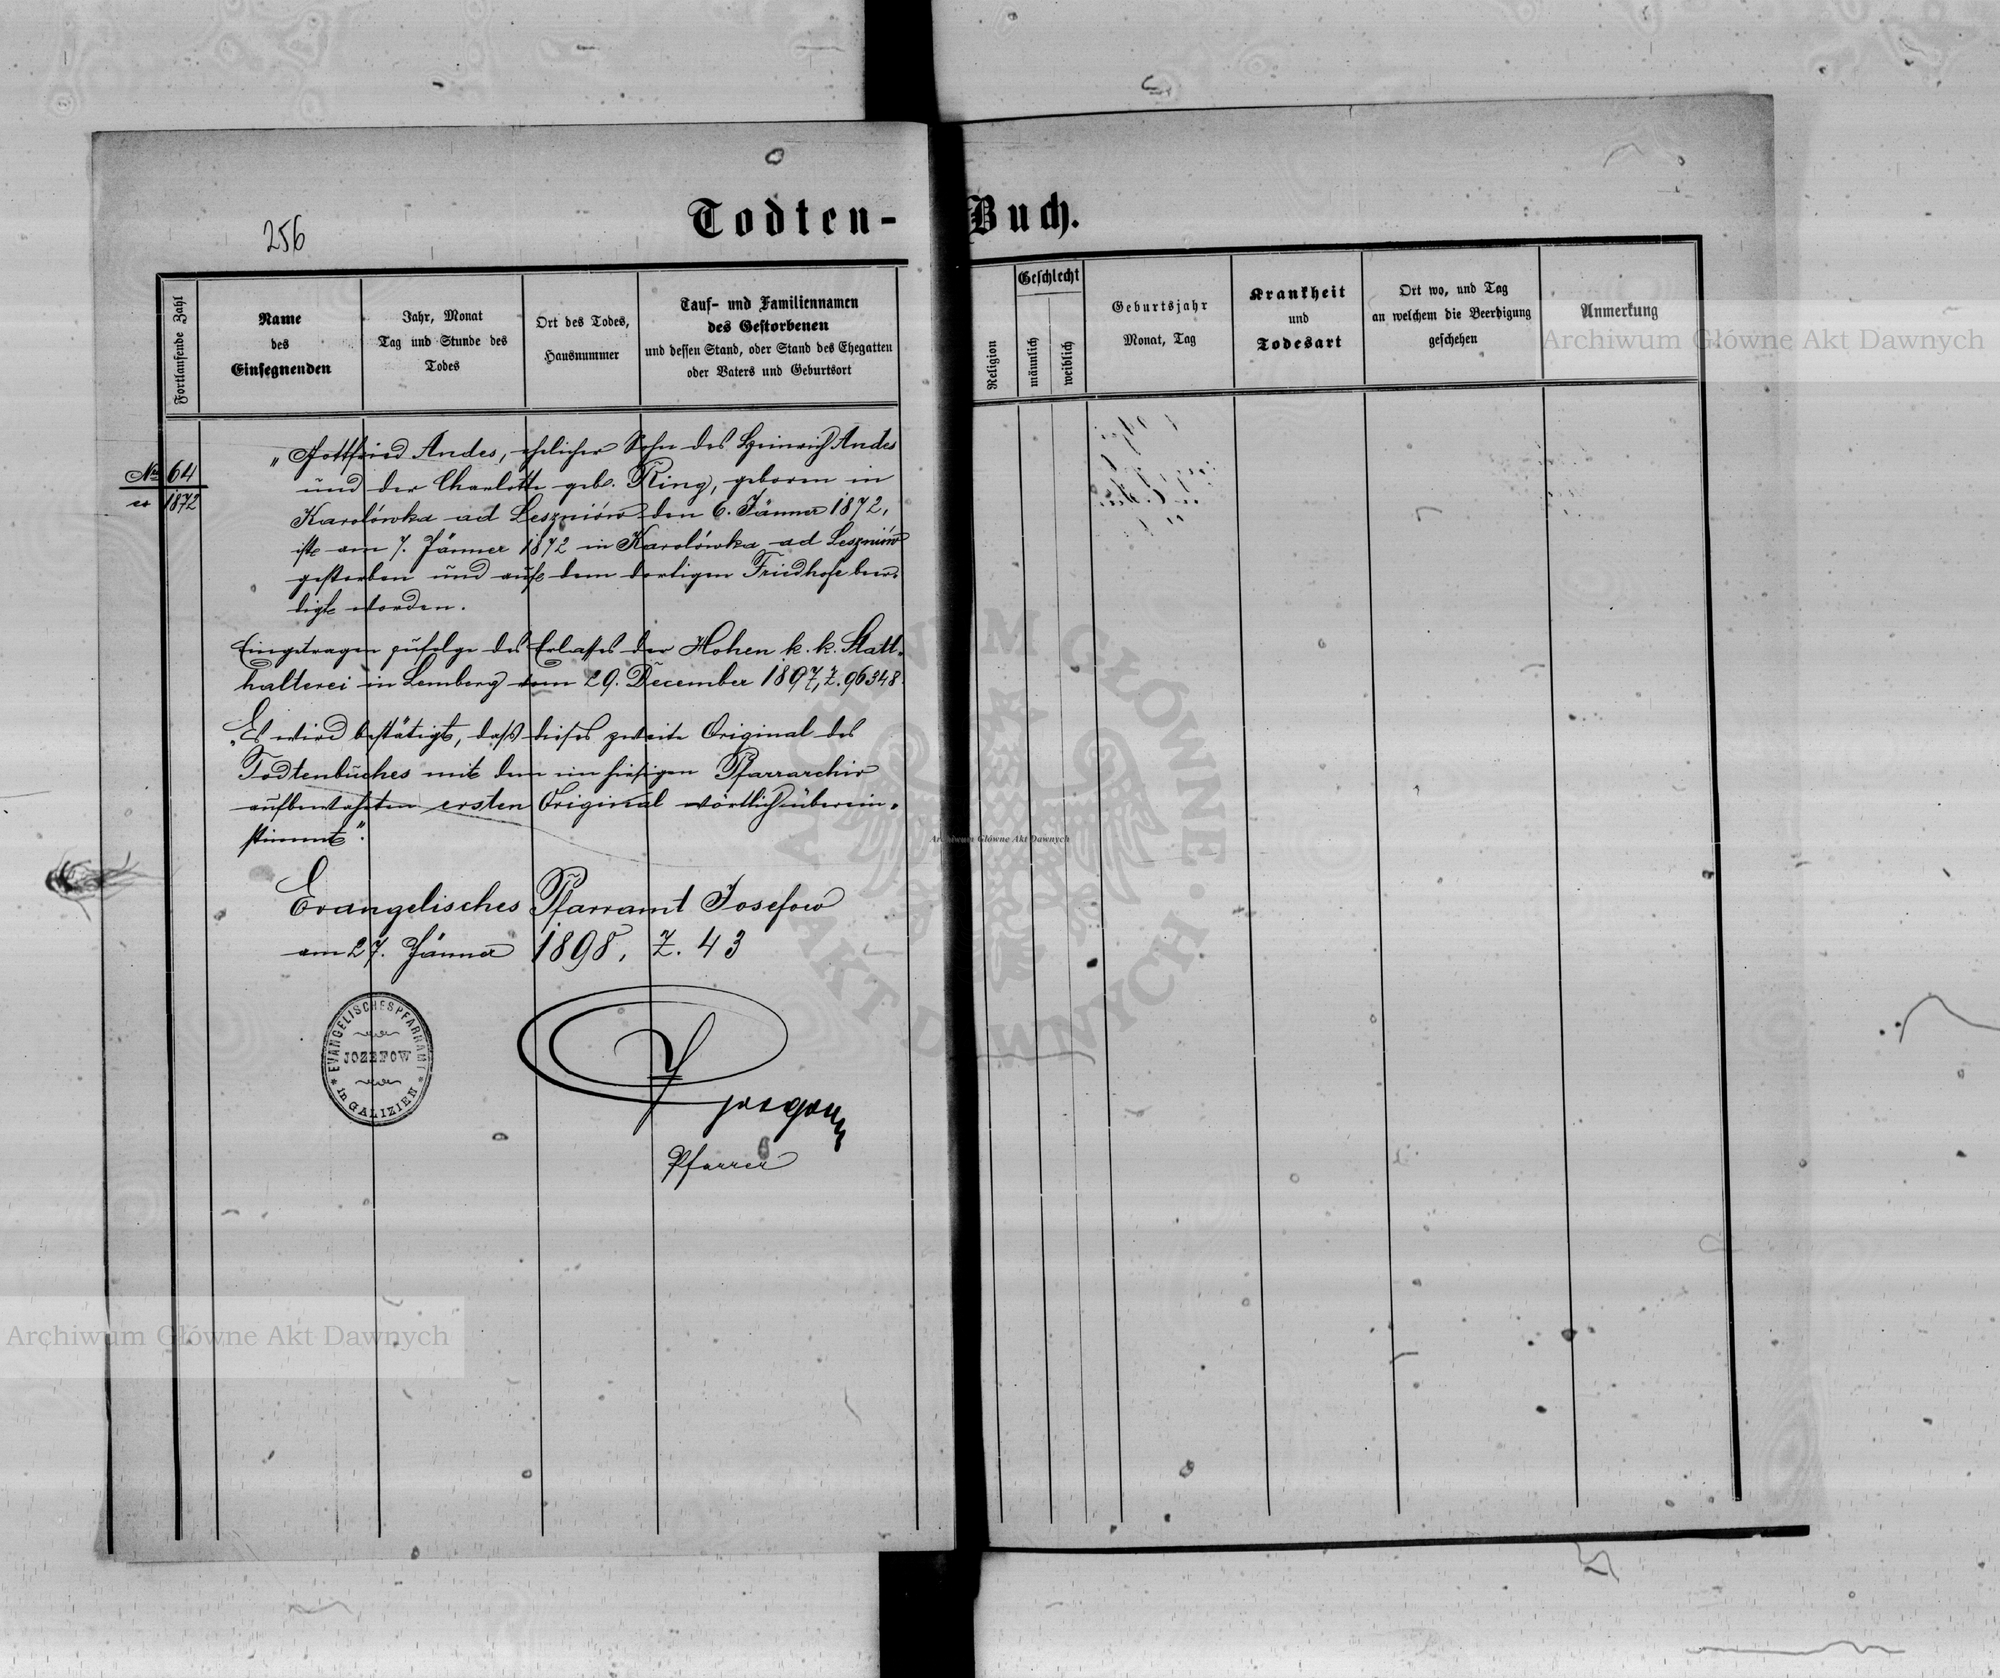 Todten-Buch.
256
Fortlaufende Zahl
Name
des
Einsegnenden
Jahr, Monat
Tag und Stunde des
Todes
Ort des Todes,
Hausnummer
Tauf- und Familiennamen
des Gestorbenen
und dessen Stand, oder Stand des Ehegatten
oder Vaters und Geburtsort
Religion
Geschlecht
männlich
weiblich
Geburtsjahr
Monat, Tag
Krankheit
und
Todesart
Ort wo, und Tag
an welchem die Beerdigung
geschehen
Anmerkung
Archiwum Główne Akt Dawnych
No 64
1872
„Gottfried Andes, ehelicher Sohn des Heinrich Andes
und der Charlotte geb. Ring, geboren in
Karolówka ad Leszniów den 6. Jänner 1872,
ist am 7. Jänner 1872 in Karolówka ad Leszniów
gestorben und auf dem dortigen Friedhofe beer-
digt worden.
Eingetragen zufolge des Erlasses der Hohen k. k. Statt-
halterei in Lemberg vom 29. December 1897, Z. 96348.
„Es wird bestätigt, daß dieses zweite Original des
Todtenbuches mit dem im hiesigen Pfarrarchiv
aufbewahrten ersten Original wörtlich überein-
stimmt“.
Evangelisches Pfarramt Josefow
am 27. Jänner 1898, Z. 43
EVANGELISCHES PFARRAMT
JOZEFOW
in GALIZIEN
Pfarrer
ARCHIWUM GŁÓWNE AKT DAWNYCH
Archiwum Główne Akt Dawnych
Archiwum Główne Akt Dawnych